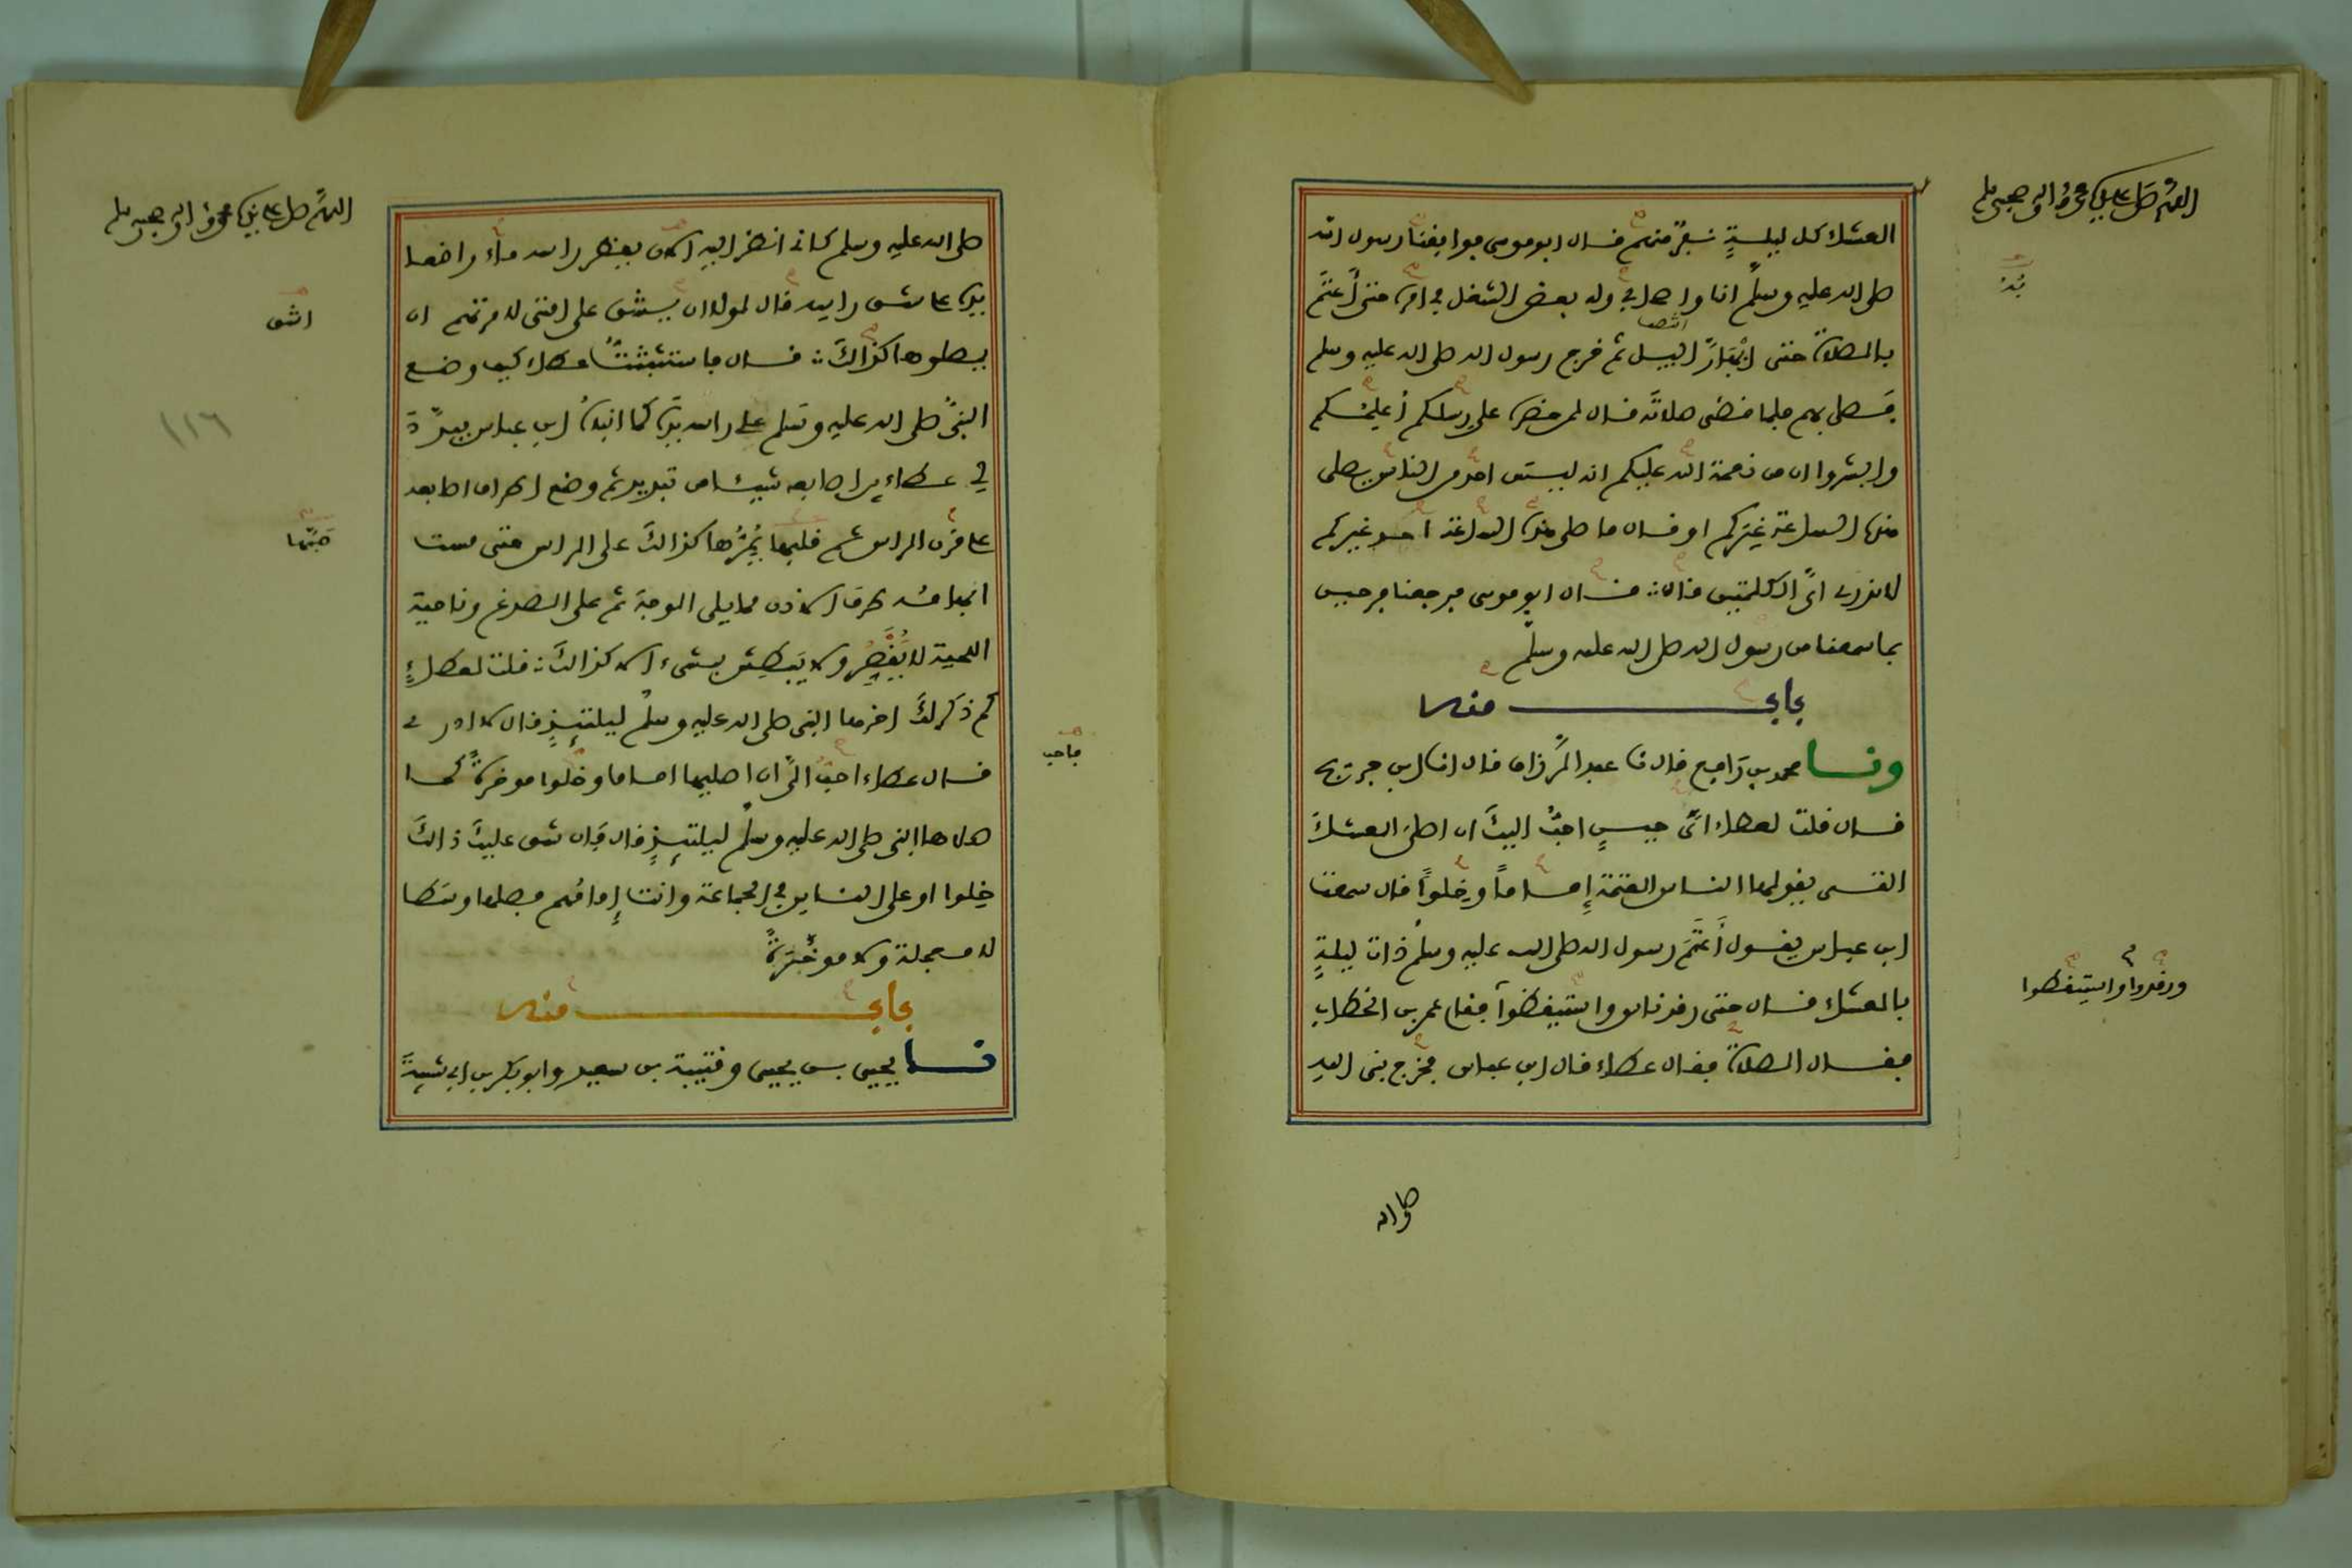 اللهم صل على نبيك محمد واله وصحبه وسلم
العشاء كل ليلة نفر منهم فال ابو موسى فوافقنا رسول الله
صلى الله عليه وسلم انا واصحابي وله بعض الشغل في امره حتى أعتم
بالصلاة حتى ابهارّ اليل ثم خرج رسول الله صلى الله عليه وسلم
فصلى بهم فلما فضى صلاته فال لمن حضره على رسلكم أعلمكم
وابشروا ان من نعمة الله عليكم انه ليس احد من الناس يصلي
هذه الساعة غيركم او فال ما صلى هذه الساعة احد غيركم
لا ندري اي الكلمتين فال فال ابو موسى فرجعنا فرحين
بما سمعنا من رسول الله صلى الله عليه وسلم
باب منه
ونا محمد بن رافع فال نا عبد الرزاق فال انا ابن جريج
فال فلت لعطاء ايّ حين احبّ اليك ان اصلي العشاء
التي يفولها الناس العتمة إماما وخِلوا فال سمعت
ابن عباس يفول أعتم رسول الله صلى الله عليه وسلم ذات ليلة
بالعشاء فال حتى رفد ناس واستيفظوا ففام عمر بن الخطاب
ورفدوا واستيفظوا
ففال الصلاة ففال عطاء فال ابن عباس فخرج نبي الله
صلى الله
اللهم صل على نبيك محمد واله وصحبه وسلم
صلى الله عليه وسلم كاني انظر اليه الان يفطر راسه ماء واضعا
يده على شق راسه فال لولا ان يشق على امتي لامرتهم ان
اشق
يصلوها كذالك فال فاستثبتت عطاء كيف وضع
النبي صلى الله عليه وسلم على راسه يده كما انباه ابن عباس فبدّد
١١٦
لي عطاء بين اصابعه شيئا من تبديد ثم وضع اطراف اصابعه
على فرن الراس ثم فلبها يُمِرُّها كذالك على الراس حتى مست
صبّها
ابهامه طرف الاذن مما يلي الوجه ثم على الصدغ وناحية
اللحية لا يفصر ولا يبطش بشيء الا كذالك فلت لعطاء
كم ذكر لك اخرها النبي صلى الله عليه وسلم ليلتئذ فال لا ادري
فال عطاء احبّ اليّ ان اصليها اماما وخلوا موخرة كما
صلاها النبي صلى الله عليه وسلم ليلتئذ فال فان شق عليك ذالك
خِلوا او على الناس في الجماعة وانت إمامهم فصلها وسطا
لا معجلة ولا موخَّرة
باب منه
نا يحيى بن يحيى وفتيبة بن سعيد وابو بكر بن ابي شيبة